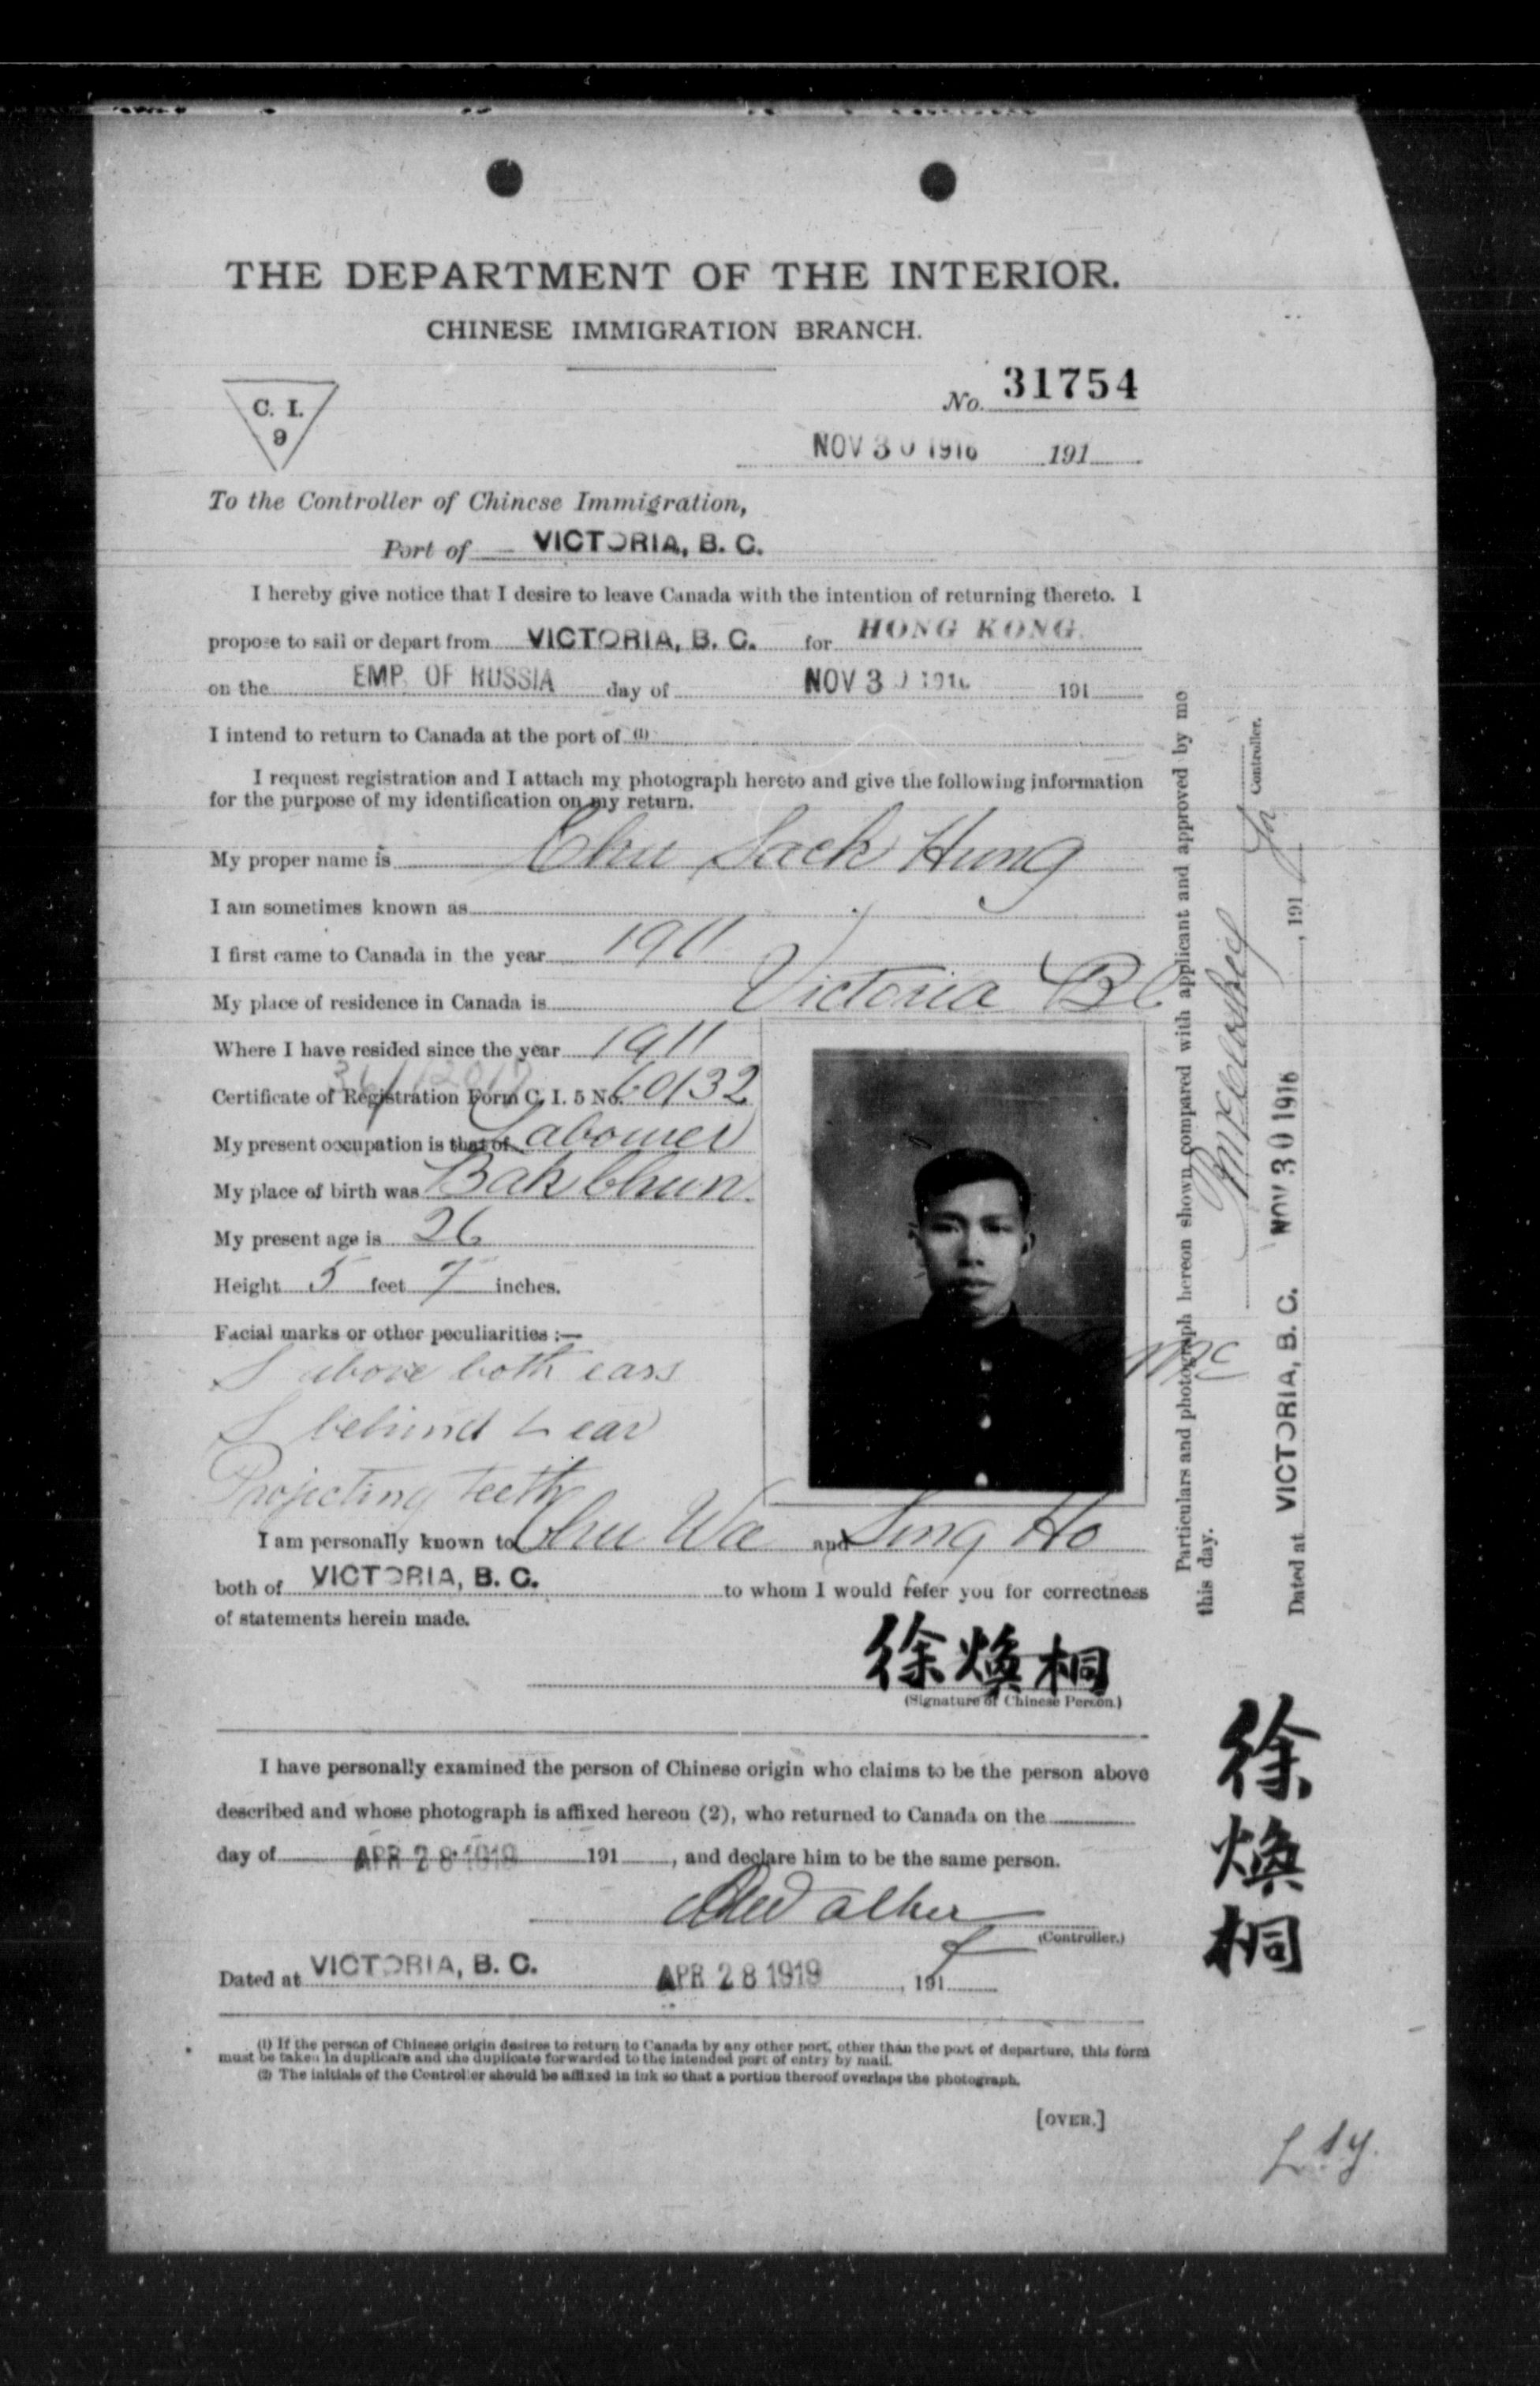 THE DEPARTMENT OF THE INTERIOR.
CHINESE IMMIGRATION BRANCH.
C. I.
9
No. 31754
NOV 30 1916 191
To the Controller of Chinese Immigration,
Port of VICTORIA, B. C.
I hereby give notice that I desire to leave Canada with the intention of returning thereto. I
propose to sail or depart from VICTORIA, B. C. for HONG KONG.
on the EMP. OF RUSSIA day of NOV 30 1916 191
I intend to return to Canada at the port of (1)
I request registration and I attach my photograph hereto and give the following information
for the purpose of my identification on my return.
My proper name is Chu Sack Hung
I am sometimes known as
I first came to Canada in the year 1911
My place of residence in Canada is Victoria BC
Where I have resided since the year 1911
Certificate of Registration Form C. I. 5 No. 60132
My present occupation is that of Labourer
My place of birth was Bak Chun
My present age is 26
Height 5 feet 7 inches.
Facial marks or other peculiarities :—
S above both ears
S behind L ear
Projecting teeth
I am personally known to Chu Wa and Sing Ho
both of VICTORIA, B. C. to whom I would refer you for correctness
of statements herein made.
徐煥桐
(Signature of Chinese Person.)
I have personally examined the person of Chinese origin who claims to be the person above
described and whose photograph is affixed hereon (2), who returned to Canada on the
day of APR 28 1919 191 , and declare him to be the same person.
(Controller.)
Dated at VICTORIA, B. C. APR 28 1919 , 191
(1) If the person of Chinese origin desires to return to Canada by any other port, other than the port of departure, this form
must be taken in duplicate and the duplicate forwarded to the intended port of entry by mail.
(2) The initials of the Controller should be affixed in ink so that a portion thereof overlaps the photograph.
[OVER.]
Particulars and photograph hereon shown compared with applicant and approved by me
this day.
Controller.
Dated at VICTORIA, B. C. NOV 30 1916 , 191
Mc
徐煥桐